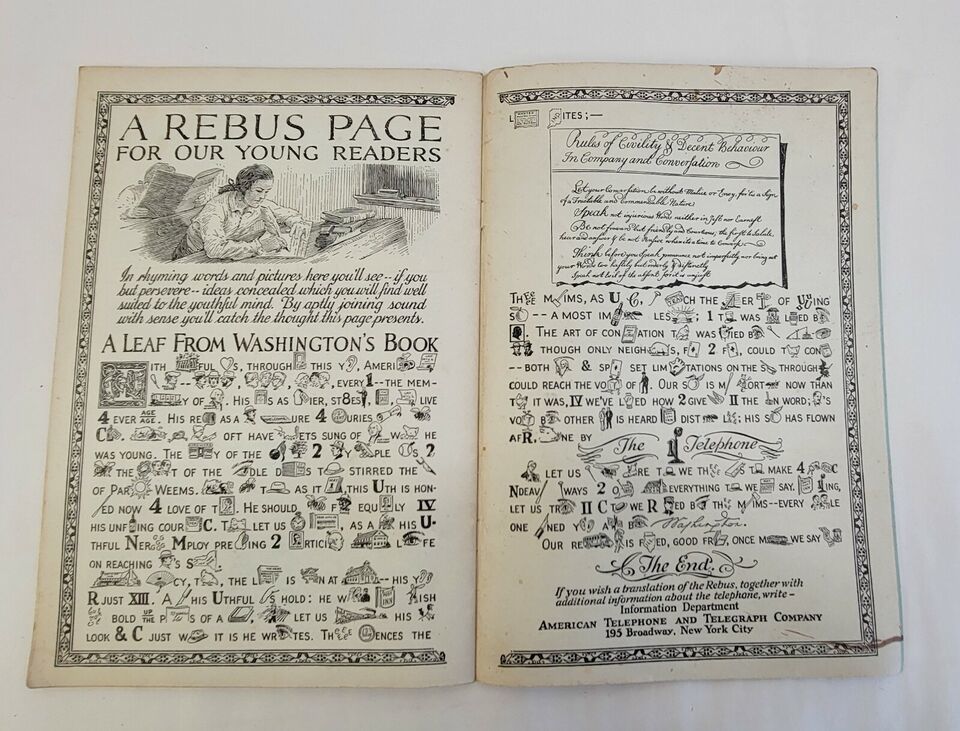 A REBUS PAGE
FOR OUR YOUNG READERS
In rhyming words and pictures here you'll see -- if you
but persevere -- ideas concealed which you will find well
suited to the youthful mind. By aptly joining sound
with sense you'll catch the thought this page presents.
A LEAF FROM WASHINGTON'S BOOK
ITH FUL S, THROUGH THIS Y , AMERI
-- , , EVERY 1 -- THE MEM-
Y OF . HIS S AS IER, ST8ES , LIVE
4 EVER AGE AGE. HIS RE AS A URE 4 URIES
C , OFT HAVE ETS SUNG OF W HE
WAS YOUNG. THE Y OF THE 2 Y PLE S 2
THE T OF THE DLE D S T STIRRED THE
OF PAR WEEMS. T AS IT THIS UTH IS HON-
ED NOW 4 LOVE OF T . HE SHOULD F EQU LY IV
HIS UNF ING COUR C. T LET US , AS A HIS U-
THFUL NER MPLOY PRE ING 2 RTICI L FE
ON REACHING 'S S
CY, T , THE L IS N AT -- HIS Y
R JUST XIII. A HIS UTHFUL HOLD: HE W INN ISH
BOLD UP THE P S OF A , LET US HIS
LOOK & C JUST W IT IS HE WR TES. TH E ENCES THE
L ITES; --
Rules of Civility & Decent Behaviour
In Company and Conversation
Let your Conversation be without Malice or Envy, for 'tis a Sign
of a Tractable and Commendable Nature
Speak not injurious Word neither in Jest nor Earnest
Be not forward but friendly and Courteous; the first to Salute,
hear and answer & be not Pensive when it's a time to Converse
Think before you Speak, pronounce not imperfectly nor bring out
your Words too hastily but orderly & distinctly
Speak not evil of the absent for it is unjust
THE M IMS, AS U C, TEACH THE ER OF U ING
S -- A MOST IM LES ; 1 T WAS L ED B
. THE ART OF CON ATION T WAS TIED B
THOUGH ONLY NEIGH S, F 2 F , COULD T CON
-- BOTH & SP SET LIM TATIONS ON THE S THROUGH
COULD REACH THE VO OF . OUR S IS M ORT NOW THAN
T IT WAS, IV WE'VE L ED HOW 2 GIVE II THE N WORD; 'S
VO B OTHER IS HEARD DIST LY; HIS S HAS FLOWN
AFR. NE BY The Telephone
LET US RE T WE TH T MAKE 4 C
NDEAV WAYS 2 O EVERYTHING T WE SAY. ING,
LET US TR II C T WE R ED B TH M IMS -- EVERY LE
ONE NED Y A B Washington.
OUR RE IS F ED, GOOD FR , ONCE M WE SAY
The End.
If you wish a translation of the Rebus, together with
additional information about the telephone, write --
Information Department
AMERICAN TELEPHONE AND TELEGRAPH COMPANY
195 Broadway, New York City